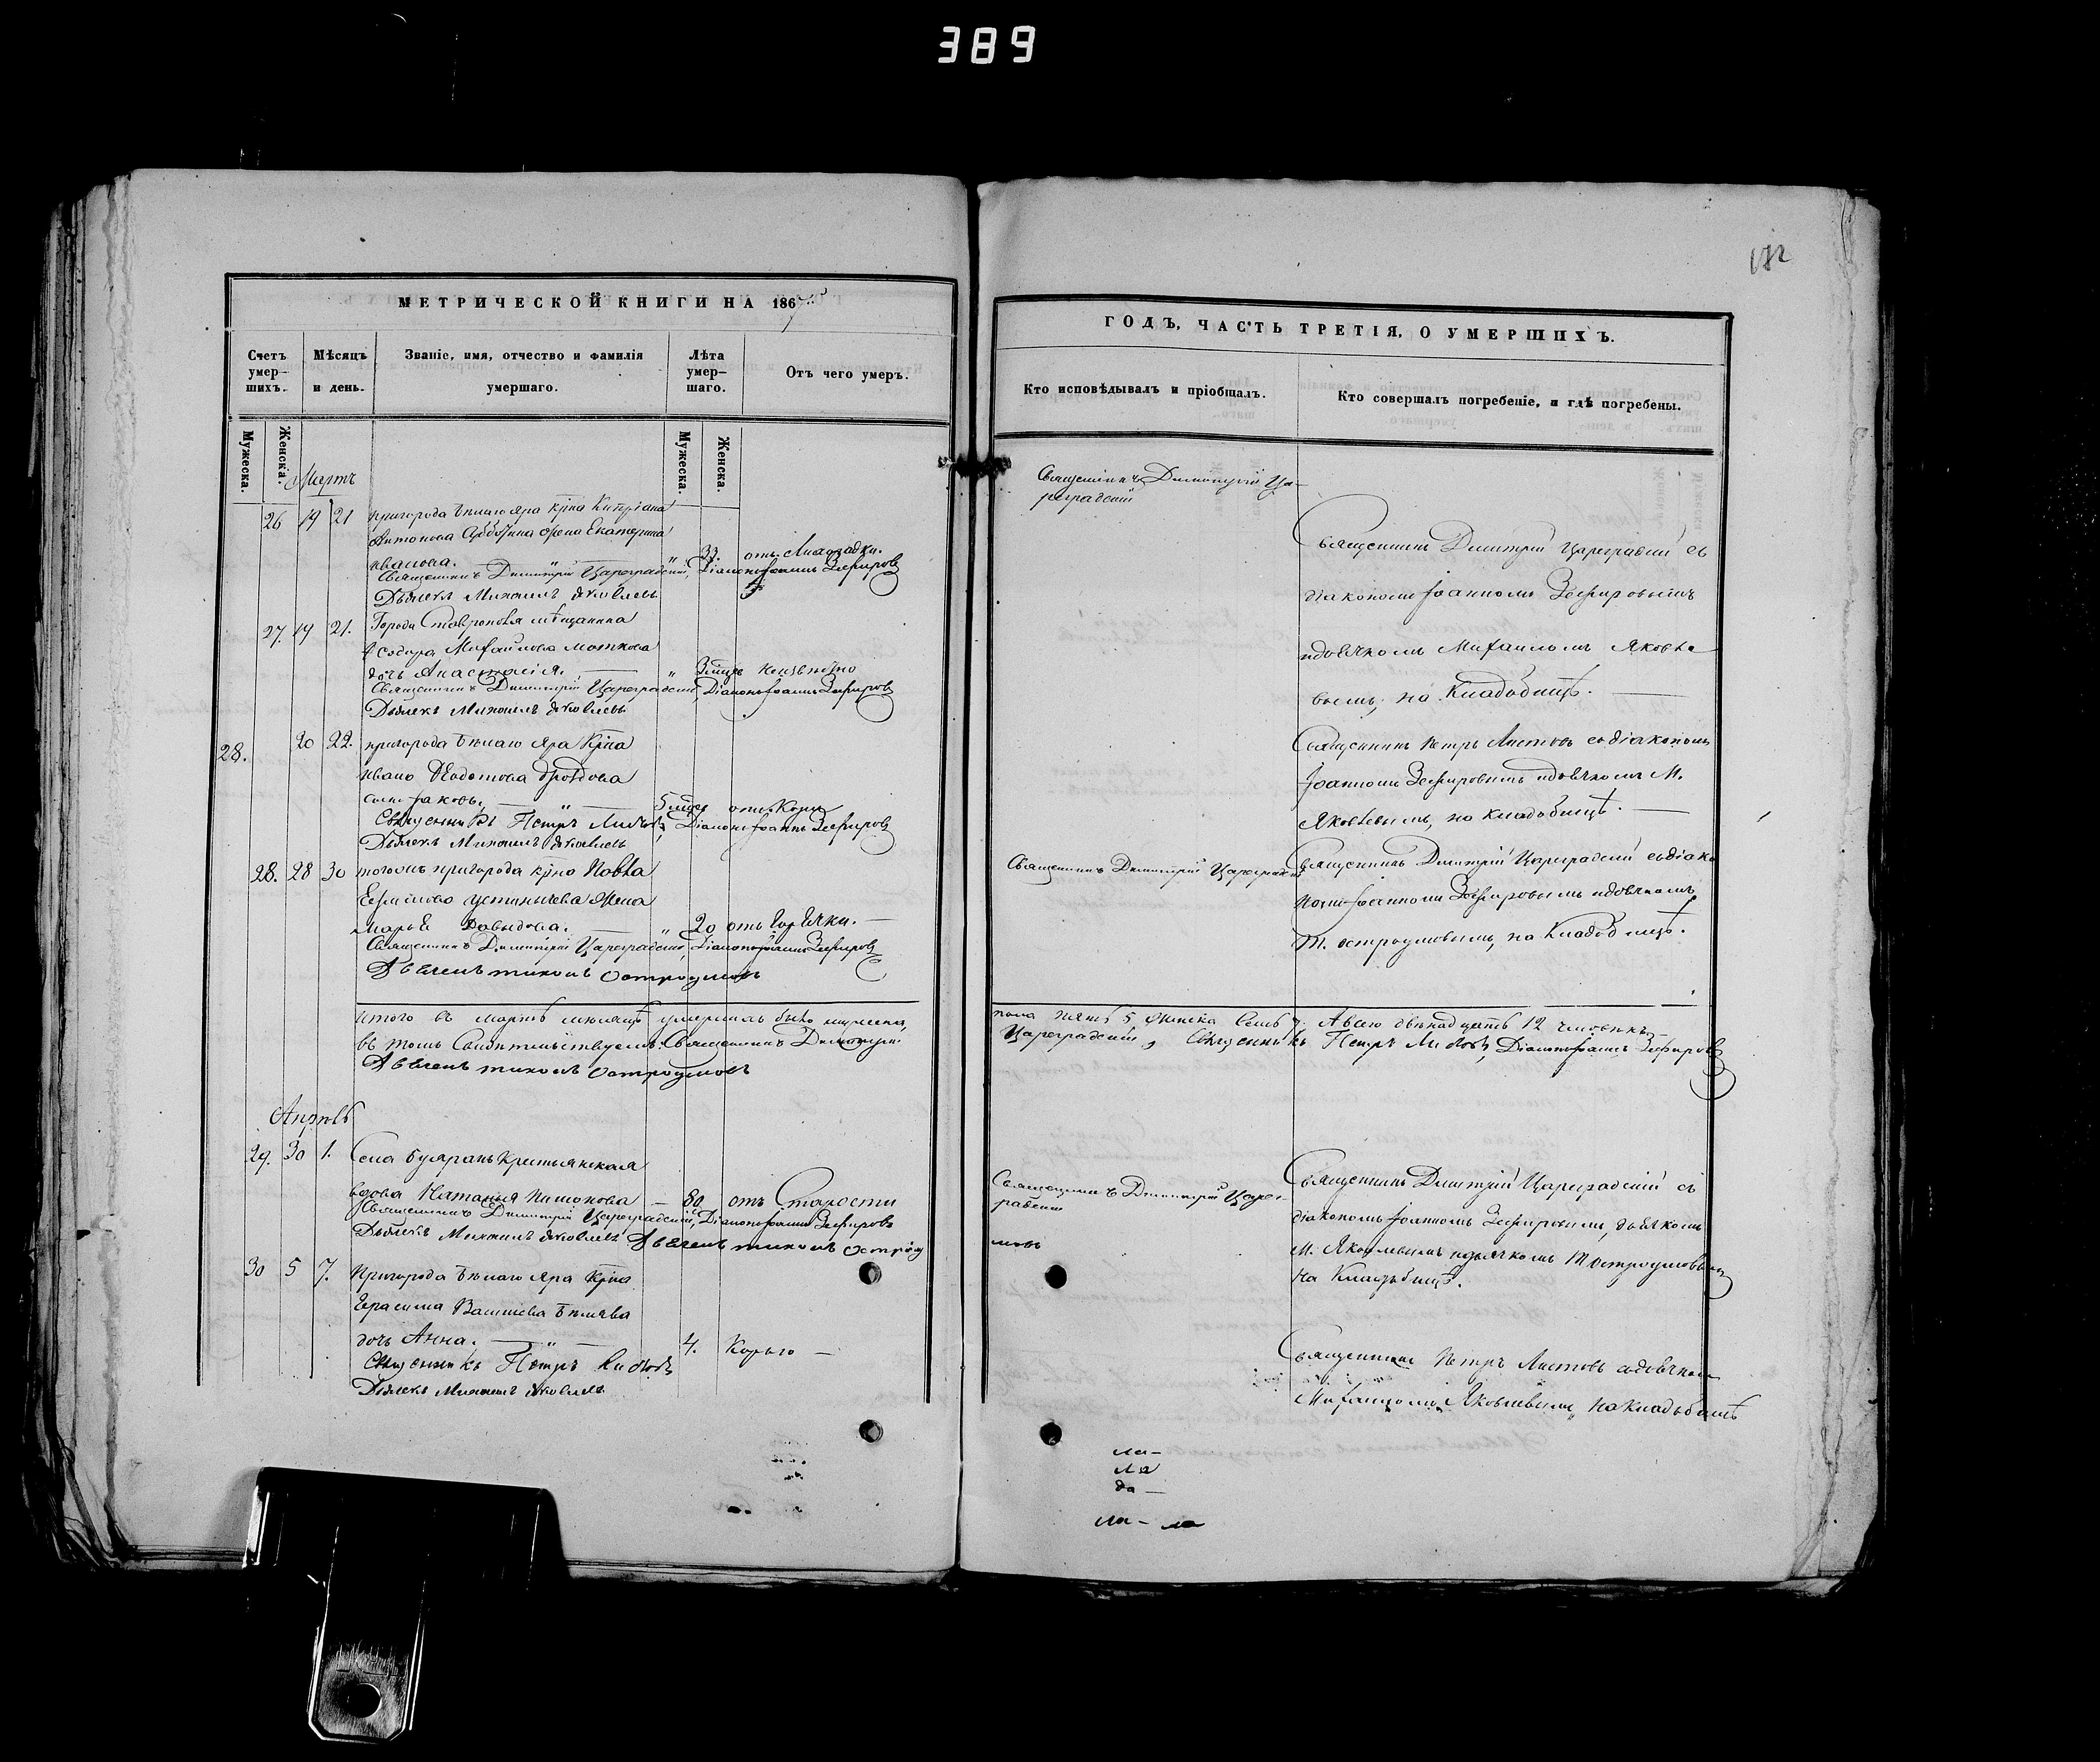 389
182
МЕТРИЧЕСКОЙ КНИГИ НА 1867
ГОДЪ, ЧАСТЬ ТРЕТІЯ, О УМЕРШИХЪ.
Счетъ умер-шихъ.
Мѣсяцъ и день.
Званіе, имя, отчество и фамилія умершаго.
Лѣта умер-шаго.
Отъ чего умеръ.
Кто исповѣдывалъ и пріобщалъ.
Кто совершалъ погребеніе, и гдѣ погребены.
Мужеска.
Женска.
Мужеска.
Женска.
Мартъ
26 19 21 пригорода Бѣлаго Яра Крна Кипріана
Антонова жена Екатерина
Иванова. " 33. отъ Лихорадки.
Священникъ Димитрій Цареградскій, Діаконъ Іоаннъ Зефировъ
Дьячекъ Михаилъ Яковлевъ
Священникъ Димитрій Ца-
реградскій
Священникъ Димитрій Цареградскій съ
діакономъ Іоанномъ Зефировымъ
и дьячкомъ Михаиломъ Яковле
вымъ, на Кладбищѣ.
27. 19 21. Города Ставрополя мѣщанина
Исидора Михайлова
дочь Анастасія. "
Священникъ Димитрій Цареградскій, Діаконъ Іоаннъ Зефировъ
Дьячекъ Михаилъ Яковлевъ
28. 20 22. пригорода Бѣлаго Яра Крна
Ивана Ѳеодотова Дроздова
сынъ Іаковъ, " отъ Кори
Священникъ Петръ Листовъ, Діаконъ Іоаннъ Зефировъ
Дьячекъ Михаилъ Яковлевъ
Священникъ Петръ Листовъ съ діакономъ
Іоанномъ Зефировымъ и дьячкомъ М.
Яковлевымъ, на кладбищѣ.
28. 28 30 тогожъ пригорода крна Павла
жена
Марья Давыдова. " 20 отъ Горячки.
Священникъ Димитрій Цареградскій, Діаконъ Іоаннъ Зефировъ
Дьячекъ Тихонъ Остроумовъ
Священникъ Димитрій Цареградскій
Священникъ Димитрій Цареградскій съ діако
номъ Іоанномъ Зефировымъ и дьячкомъ
Т. Остроумовымъ, на Кладбищѣ.
Итого въ мартѣ мѣсяцѣ умершихъ было мужеска
пола пять 5 женска семь 7. А всего двѣнадцать 12 человѣкъ
въ томъ свидѣтельствуемъ: Священникъ Димитрій
Цареградскій, Священникъ Петръ Листовъ, Діаконъ Іоаннъ Зефировъ
Дьячекъ Тихонъ Остроумовъ
Апрѣль
29. 30 1. Села Буяранъ Крестьянская
вдова Наталья 80. отъ Старости
Священникъ Димитрій Цареградскій, Діаконъ Іоаннъ Зефировъ
Дьячекъ Михаилъ Яковлевъ Дьячекъ Тихонъ Остроу
мовъ
Священникъ Димитрій Царе-
градскій
Священникъ Димитрій Цареградскій съ
діакономъ Іоанномъ Зефировымъ, дьячкомъ
М. Яковлевымъ и дьячкомъ Т Остроумовымъ
на Кладбищѣ.
30 5 7. Пригорода Бѣлаго Яра Крна
Герасима
дочь Анна. " 4. Корью
Священникъ Петръ Листовъ
Дьячекъ Михаилъ Яковлевъ
Священникъ Петръ Листовъ съ дьячкомъ
Михаиломъ Яковлевымъ, на Кладбищѣ
ла-
ла
да-
ла- ла